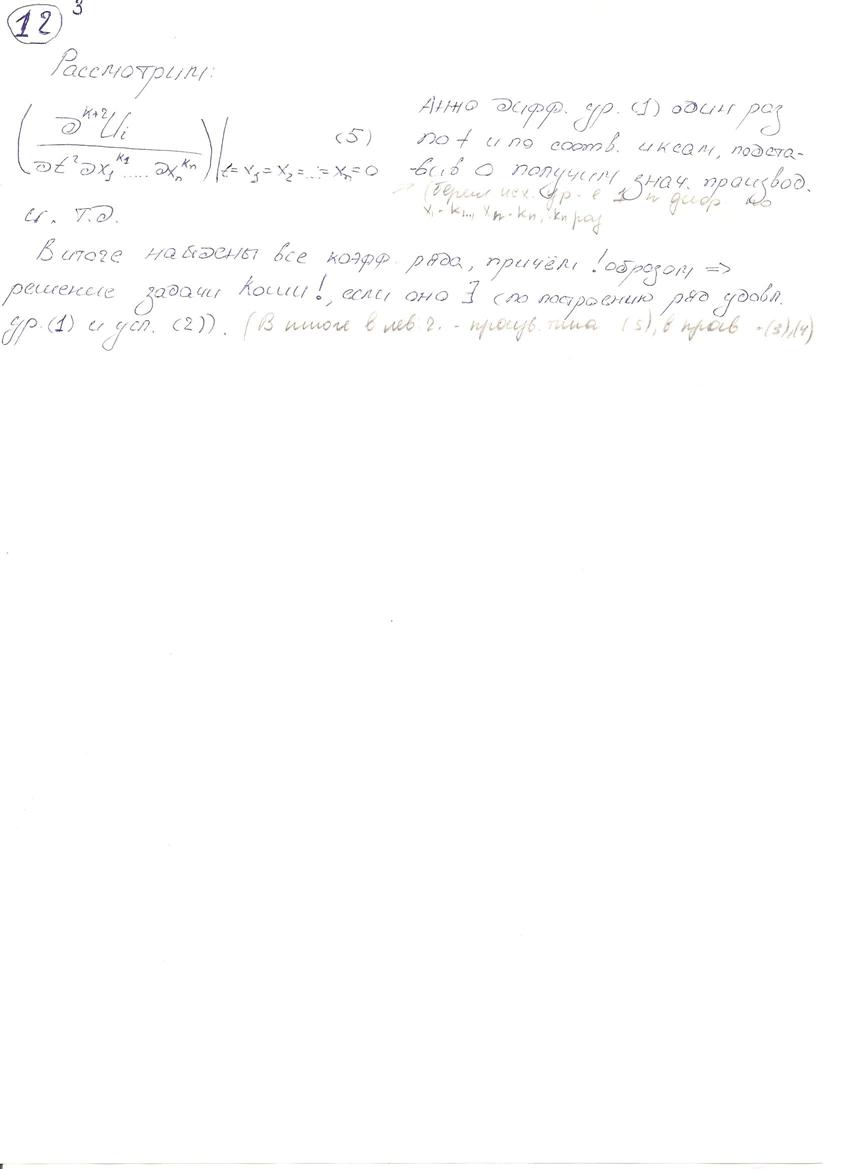 12 3
Рассмотрим:
(∂^{k+2} U_i / ∂t² ∂x_1^{k_1} ..... ∂x_n^{k_n}) |_{t=x_1=x_2=...=x_n=0} (5)
дифф. ур. (1) один раз
по t и по соотв. иксам, подста-
вив 0 получим знач. производ.
(берем исх. ур. 
раз
и т.д.
В итоге найдены все коэфф. ряда, причём !образом =>
решение задачи Коши !, если оно ∃ (по построению ряд удовл.
ур. (1) и усл. (2)). (В итоге в лев. ч. - произв. типа (5), в прав - (3),(4)